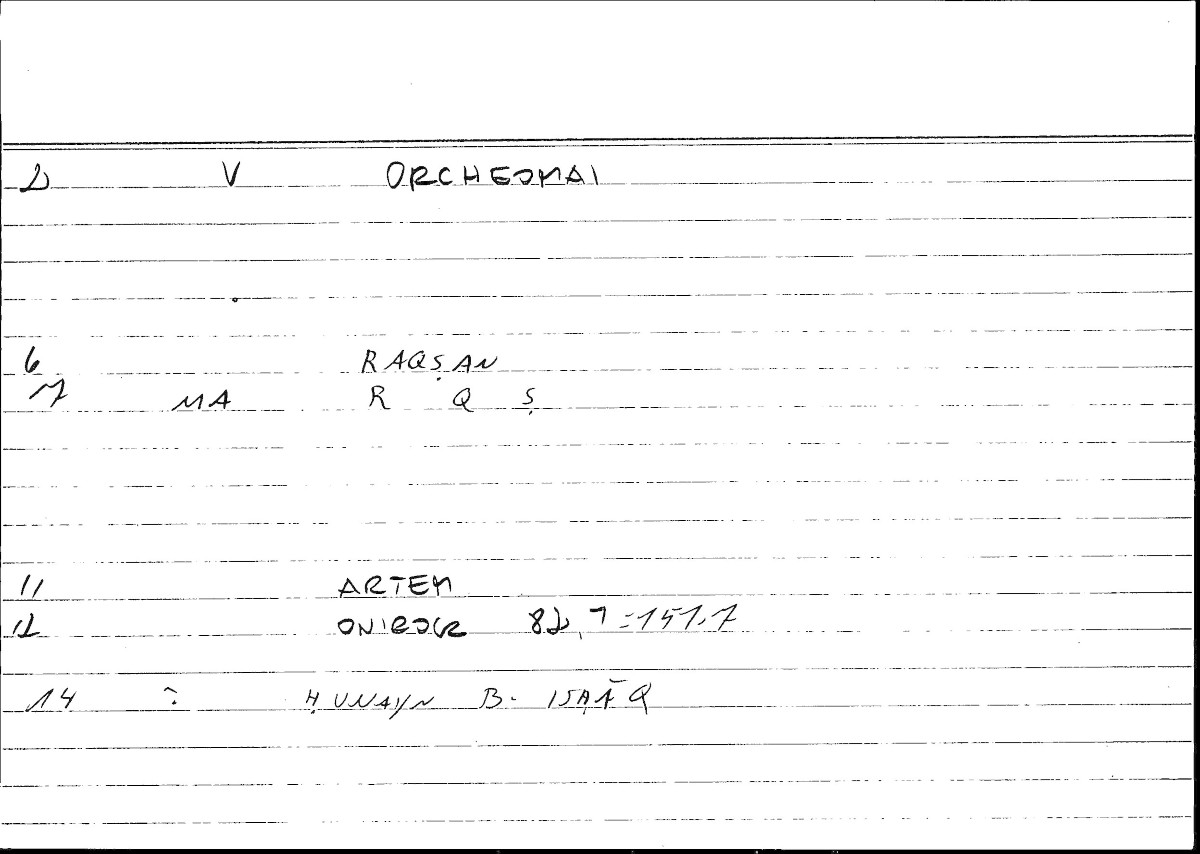 2 V ORCHEOMAI
6 RAQṢAN
7 MA R Q Ṣ
11 ARTEM
12 ONIROCR 82,7 = 151.7
14 ? ḤUNAYN B. ISḤĀQ